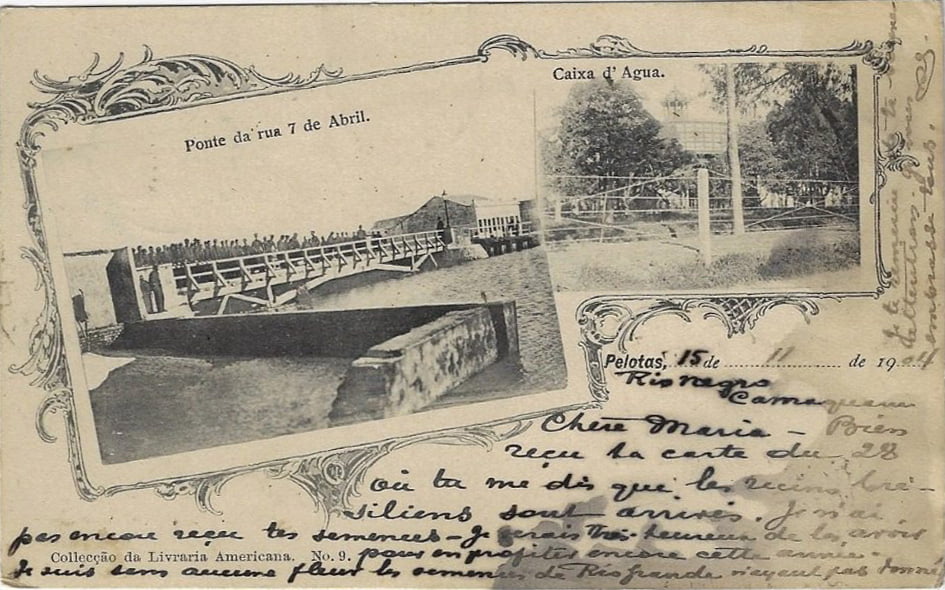 Ponte da rua 7 de Abril.
Caixa d'Agua.
Pelotas, 15 de 11 de 1904
Rio negro
Camaquam
Chère Maria – Bien
reçu ta carte du 28
où tu me dis que les ricins bré-
siliens sont arrivés. Je n'ai
pas encore reçu tes semences – Je serais très heureux de les avoir
pour en profiter encore cette année –
Collecção da Livraria Americana. No. 9.
Je suis sans aucune fleur les semences de Rio Grande n'ayant pas donné
Je te remercie de te
embrasse tous.